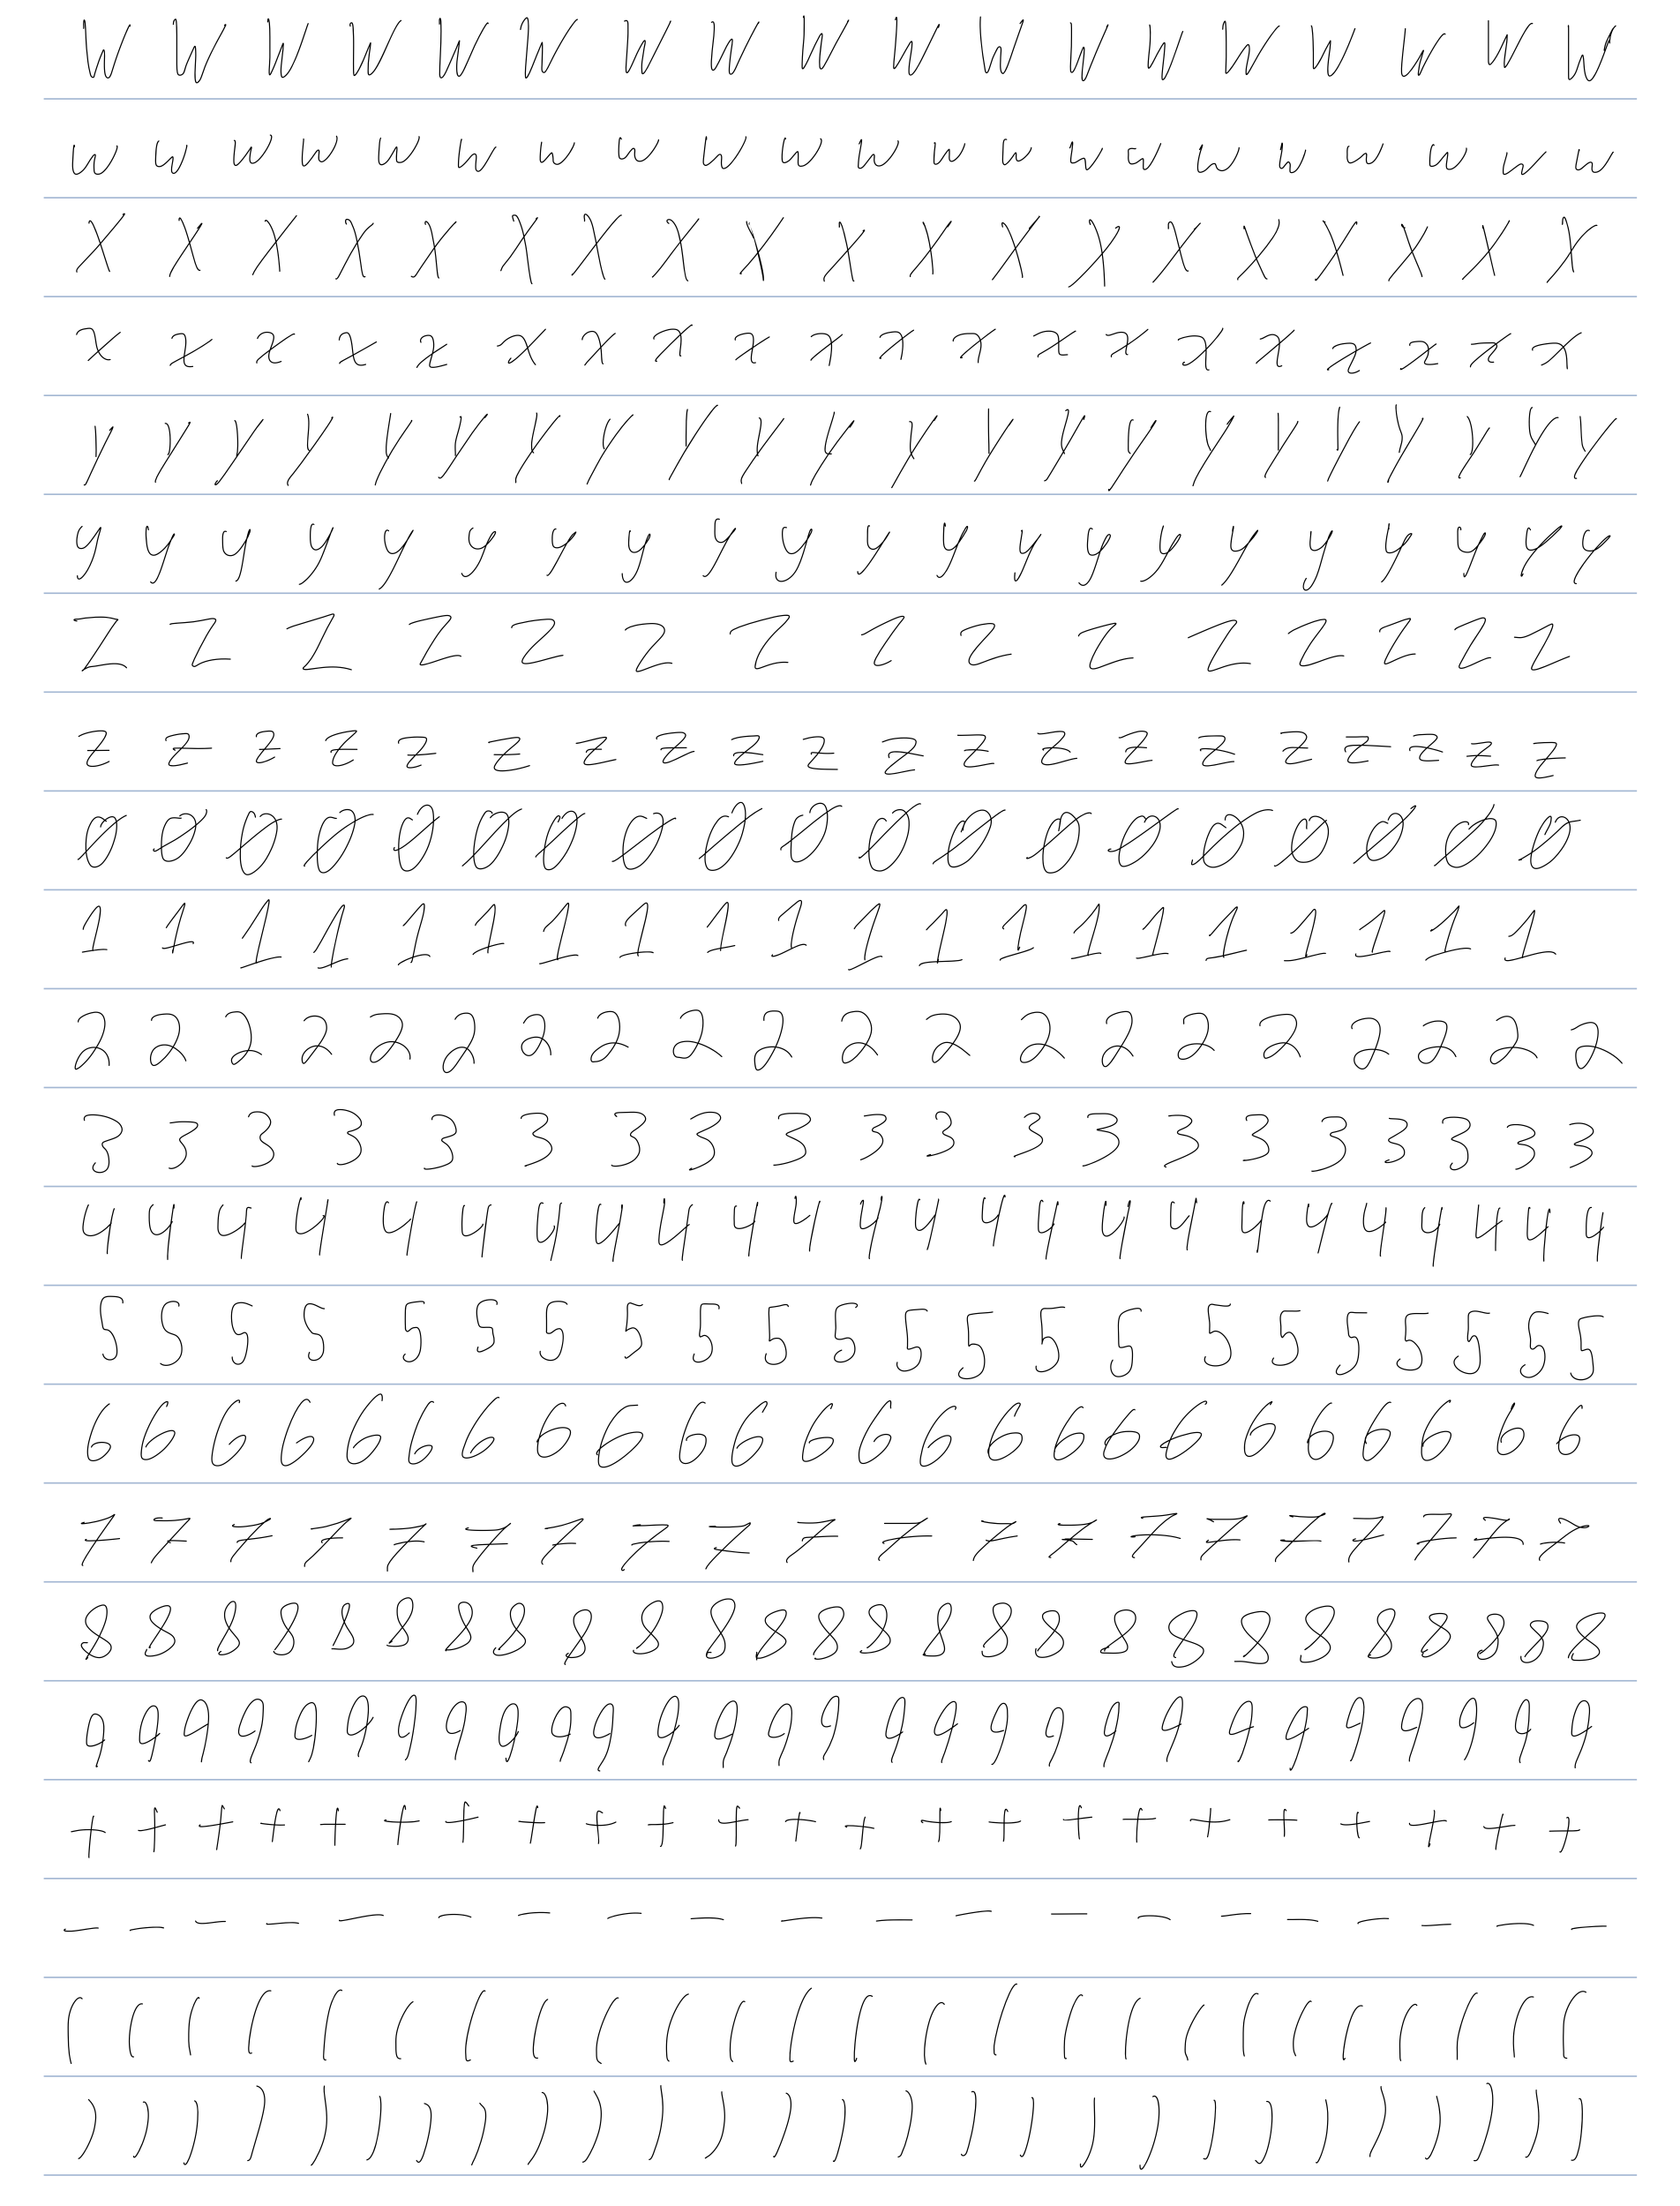 W W W W W W W W W W W W W W W W W W
w w w w w w w w w w w w w w w w w w w w w
X X X X X X X X X X X X X X X X X X X
x x x x x x x x x x x x x x x x x x x x
Y Y Y Y Y Y Y Y Y Y Y Y Y Y Y Y Y Y Y Y Y Y
y y y y y y y y y y y y y y y y y y y y y
Z Z Z Z Z Z Z Z Z Z Z Z Z Z Z
z z z z z z z z z z z z z z z z z z z z
0 0 0 0 0 0 0 0 0 0 0 0 0 0 0 0 0 0 0
1 1 1 1 1 1 1 1 1 1 1 1 1 1 1 1 1 1 1 1
2 2 2 2 2 2 2 2 2 2 2 2 2 2 2 2 2 2 2 2
3 3 3 3 3 3 3 3 3 3 3 3 3 3 3 3 3 3 3 3
4 4 4 4 4 4 4 4 4 4 4 4 4 4 4 4 4 4 4 4 4 4 4 4
5 5 5 5 5 5 5 5 5 5 5 5 5 5 5 5 5 5 5 5 5 5
6 6 6 6 6 6 6 6 6 6 6 6 6 6 6 6 6 6 6 6 6 6 6 6
7 7 7 7 7 7 7 7 7 7 7 7 7 7 7 7 7 7 7 7
8 8 8 8 8 8 8 8 8 8 8 8 8 8 8 8 8 8 8 8 8 8 8 8 8 8
9 9 9 9 9 9 9 9 9 9 9 9 9 9 9 9 9 9 9 9 9 9 9 9 9 9 9 9
+ + + + + + + + + + + + + + + + + + + + + + +
- - - - - - - - - - - - - - - - - - - -
( ( ( ( ( ( ( ( ( ( ( ( ( ( ( ( ( ( ( ( ( ( ( ( (
) ) ) ) ) ) ) ) ) ) ) ) ) ) ) ) ) ) ) ) ) ) ) ) ) ) )